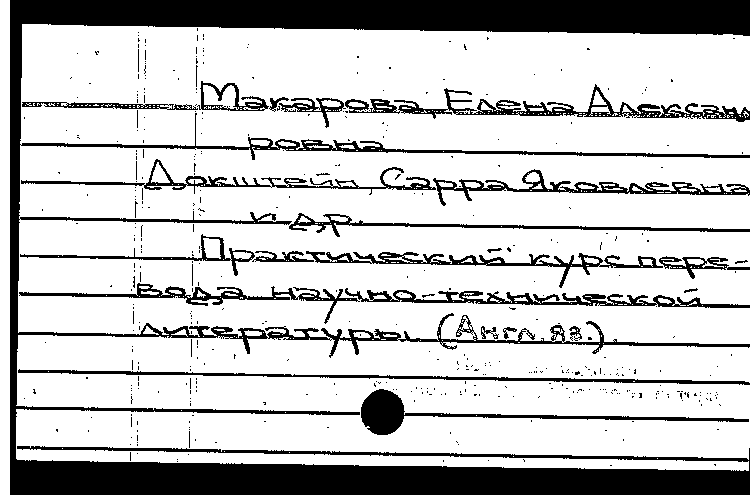 Макарова, Елена Александ
ровна
Докштейн Сарра Яковлевна
и др.
Практический курс пере-
вода научно-технической
литературы. (Англ. яз.).